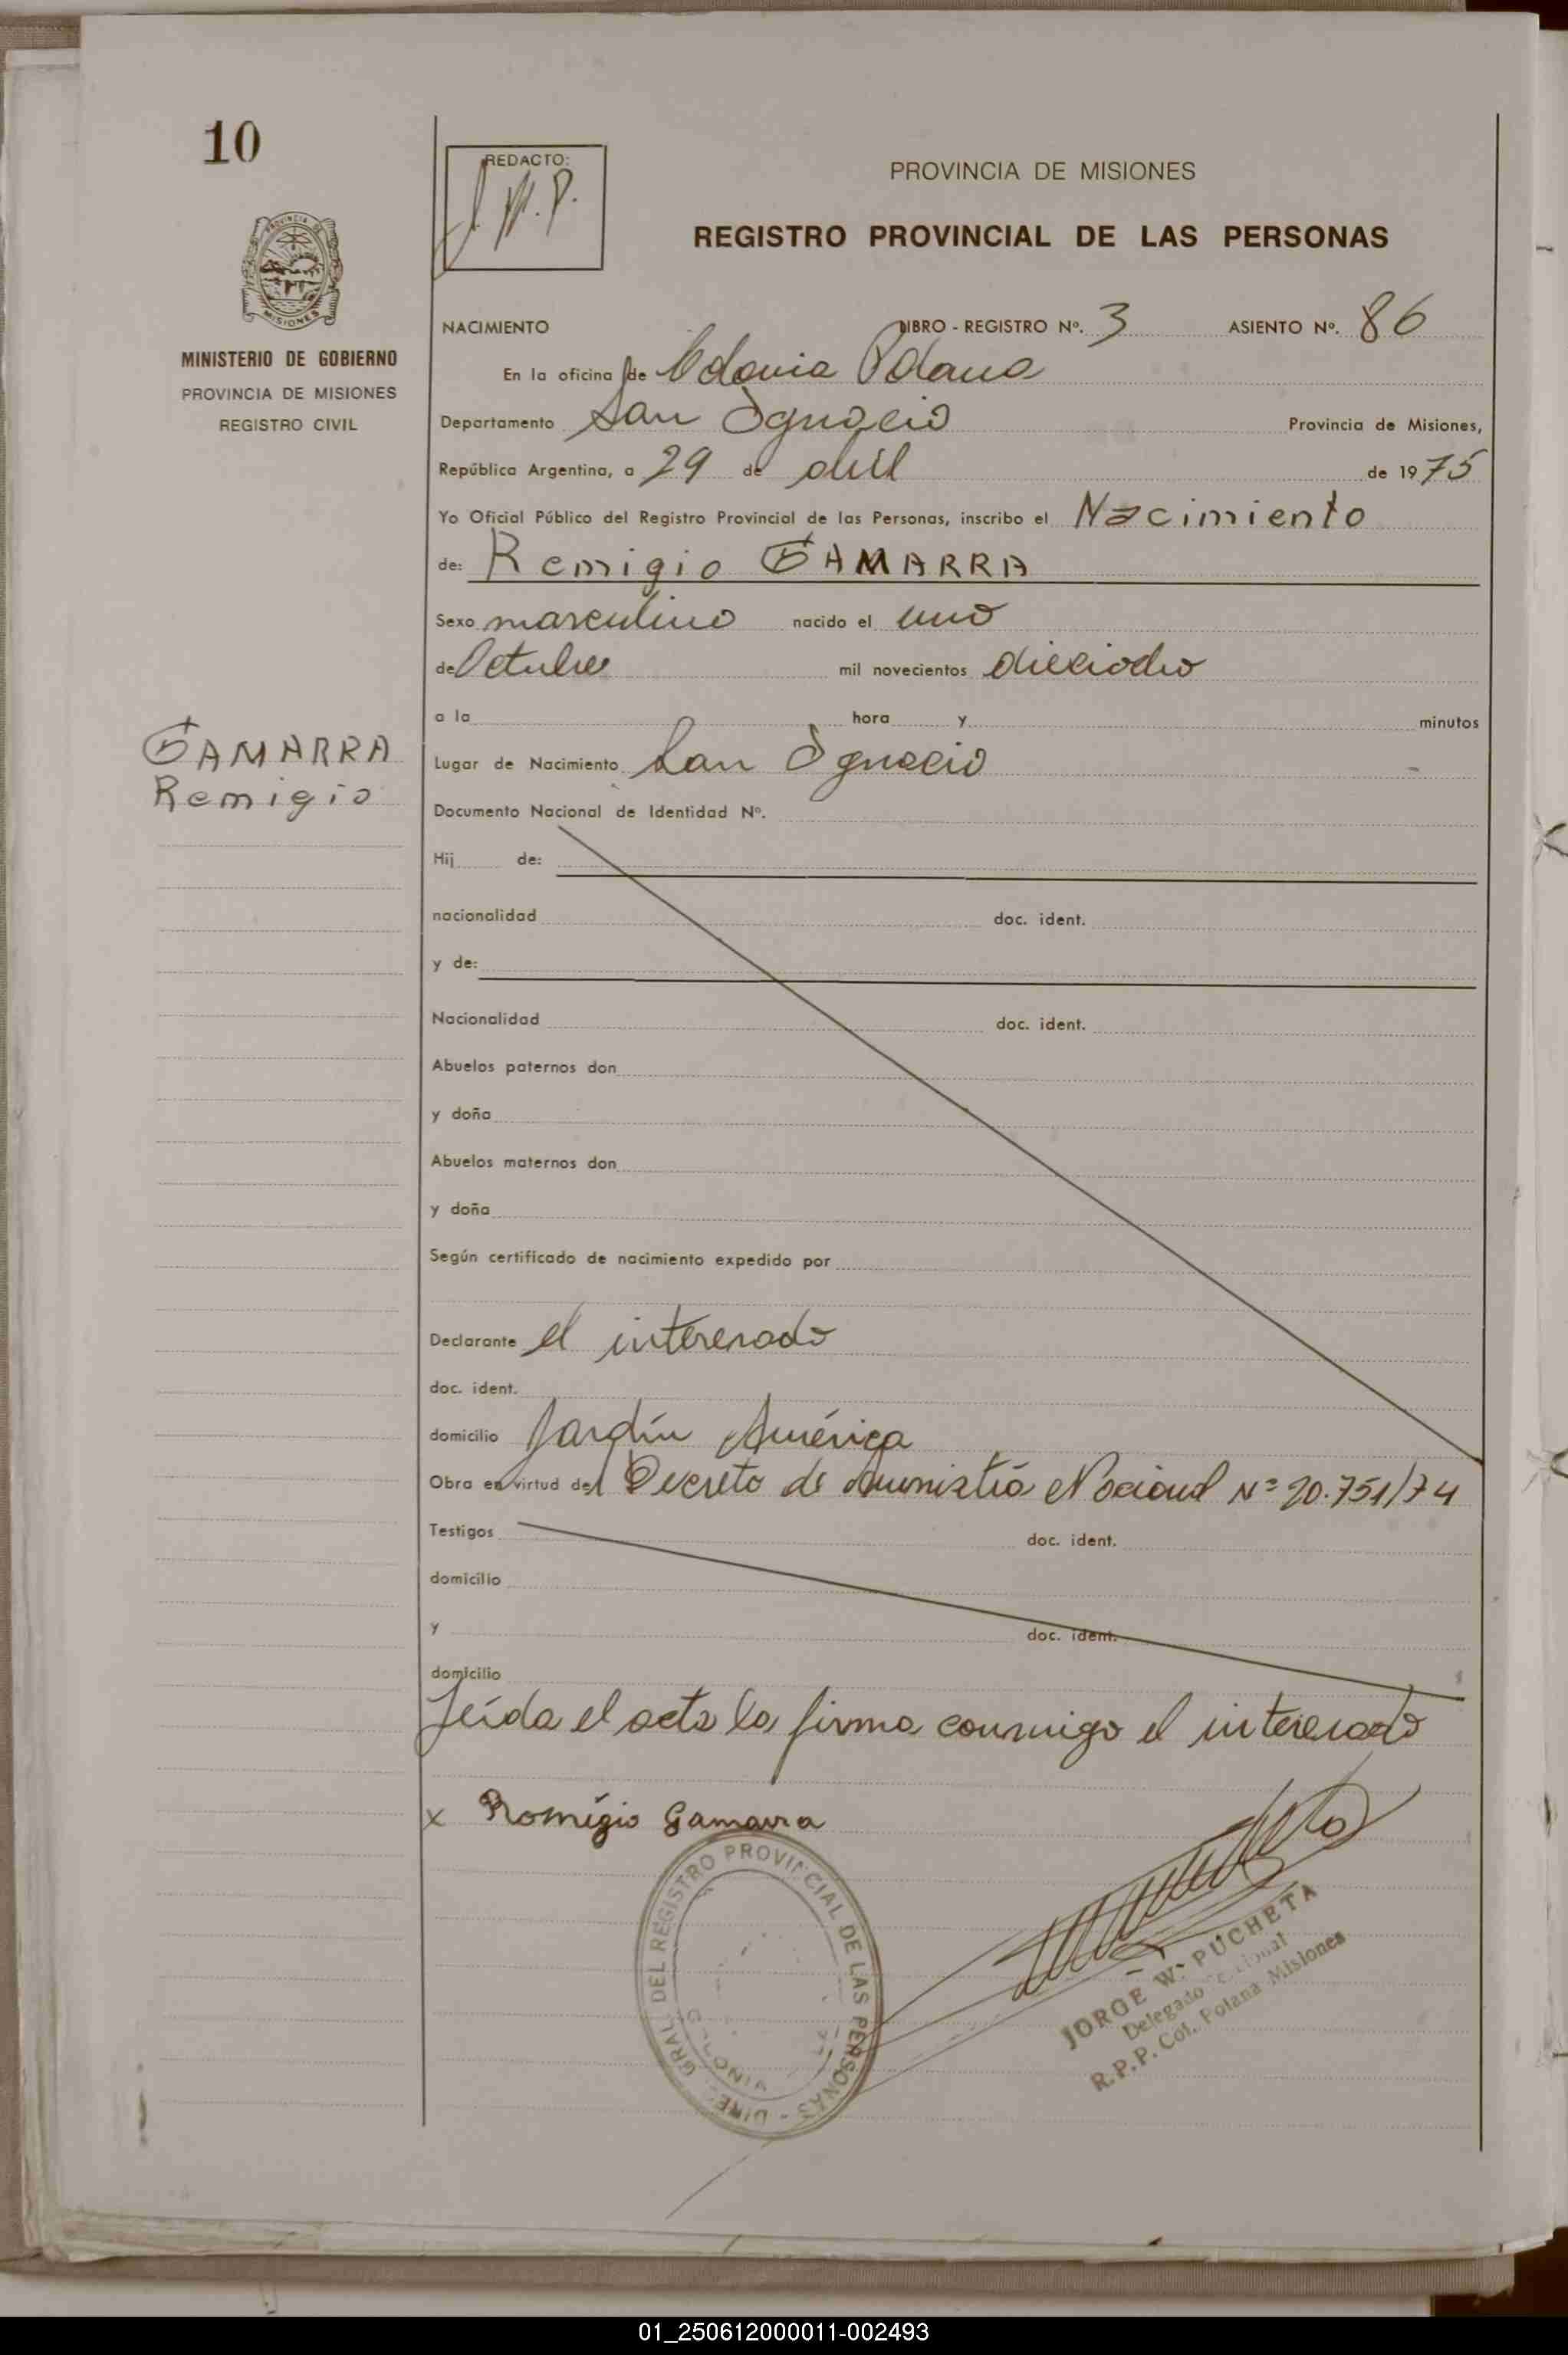 10
REDACTO:
J.W.P.
PROVINCIA DE MISIONES
REGISTRO PROVINCIAL DE LAS PERSONAS
PROVINCIA DE
MISIONES
MINISTERIO DE GOBIERNO
PROVINCIA DE MISIONES
REGISTRO CIVIL
NACIMIENTO LIBRO - REGISTRO Nº. 3 ASIENTO Nº. 86
En la oficina de Colonia Polana
Departamento San Ignacio Provincia de Misiones,
República Argentina, a 29 de abril de 1975
Yo Oficial Público del Registro Provincial de las Personas, inscribo el Nacimiento
de: Remigio GAMARRA
Sexo masculino nacido el uno
de Octubre mil novecientos dieciocho
a la hora y minutos
GAMARRA
Remigio
Lugar de Nacimiento San Ignacio
Documento Nacional de Identidad Nº.
Hij de:
nacionalidad doc. ident.
y de:
Nacionalidad doc. ident.
Abuelos paternos don
y doña
Abuelos maternos don
y doña
Según certificado de nacimiento expedido por
Declarante el interesado
doc. ident.
domicilio Jardín América
Obra en virtud del Decreto de Amnistía Nacional Nº 20.751/74
Testigos doc. ident.
domicilio
y doc. ident.
domicilio
Leída el acta la firma conmigo el interesado
x Romigio Gamarra
DIREC. GRAL. DEL REGISTRO PROVINCIAL DE LAS PERSONAS -
COLONIA
JORGE W. PUCHETA
Delegado
R.P.P. Col. Polana Misiones
01_250612000011-002493